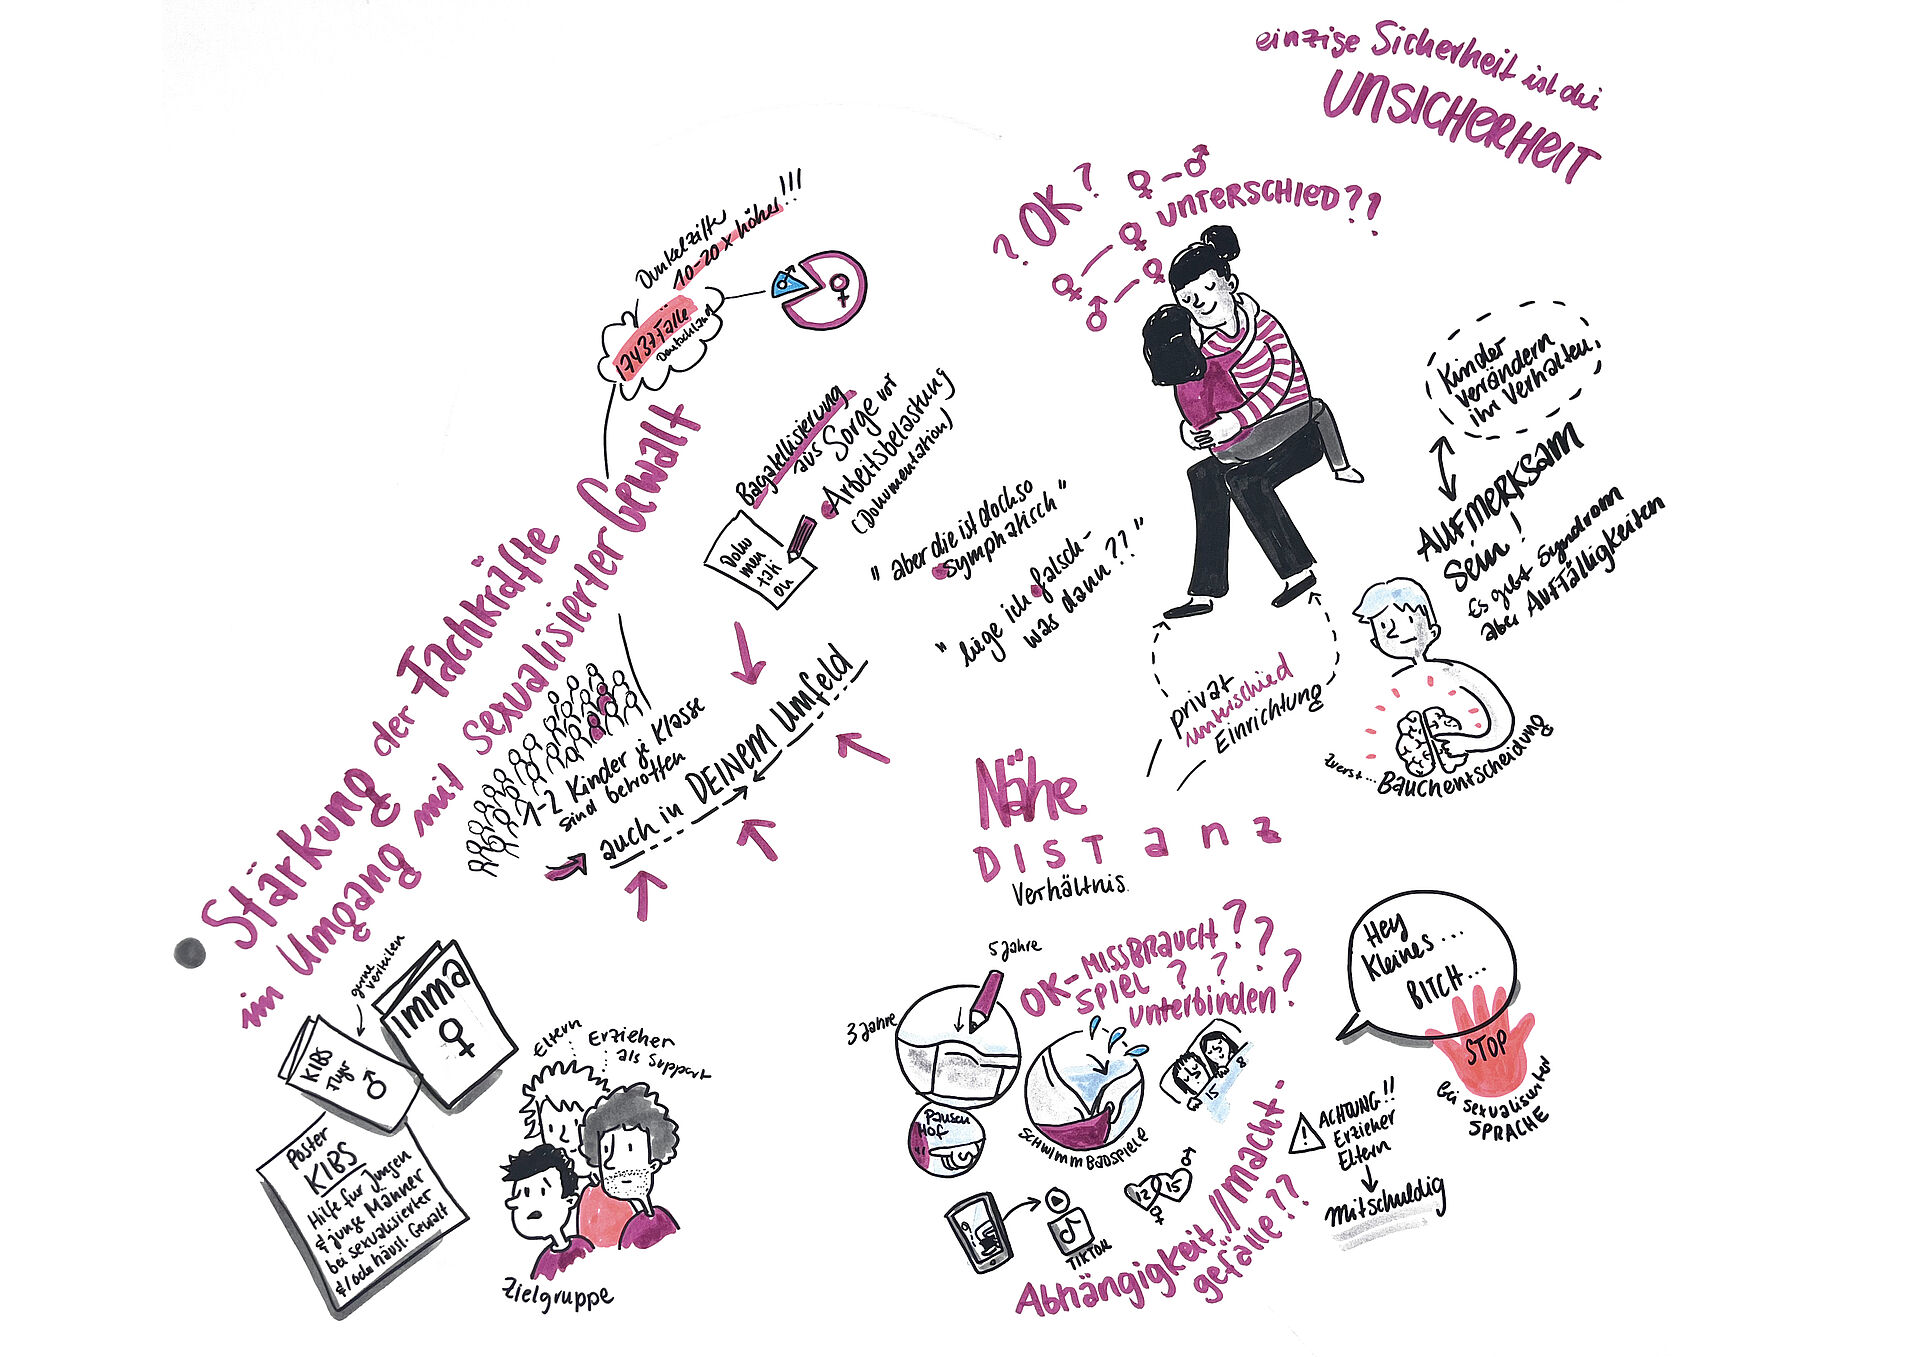 einzige Sicherheit ist die
UNSICHERHEIT
? OK?
UNTERSCHIED??
Dunkelziffer
10-20x höher!!!
17437 Fälle
Deutschland
Stärkung der Fachkräfte
im Umgang mit sexualisierter Gewalt
Bagatellisierung
aus Sorge vor
Arbeitsbelastung
(Dokumentation)
Doku
men
tati
on
"aber die ist doch so
symphatisch"
"liege ich falsch-
was dann??"
Kinder
verändern
ihr Verhalten.
AUFMERKSAM
Sein!
Es gibt Syndrom
aber Auffälligkeiten
zuerst... BAUCHentscheidung
privat
unterschied
Einrichtung
1-2 Kinder je Klasse
sind betroffen
auch in DEINEM Umfeld
Nähe
DISTanz
Verhältnis.
gerne
verteilen
Imma
KIBS
Flyer
Poster
KIBS
Hilfe für Jungen
& junge Männer
bei sexualisierter
&/oder häusl. Gewalt
Eltern
Erzieher
als Support
Zielgruppe
OK-MISSBRAUCH??
SPIEL???
unterbinden?
5 Jahre
3 Jahre
Pausen
Hof
SCHWIMMBADSPIELE
15
8
12
15
TIKTOK
Abhängigkeit//macht-
gefälle??
Hey
Kleines...
BITCH...
STOP
bei sexualisierter
SPRACHE
ACHTUNG!!
Erzieher
Eltern
mitschuldig